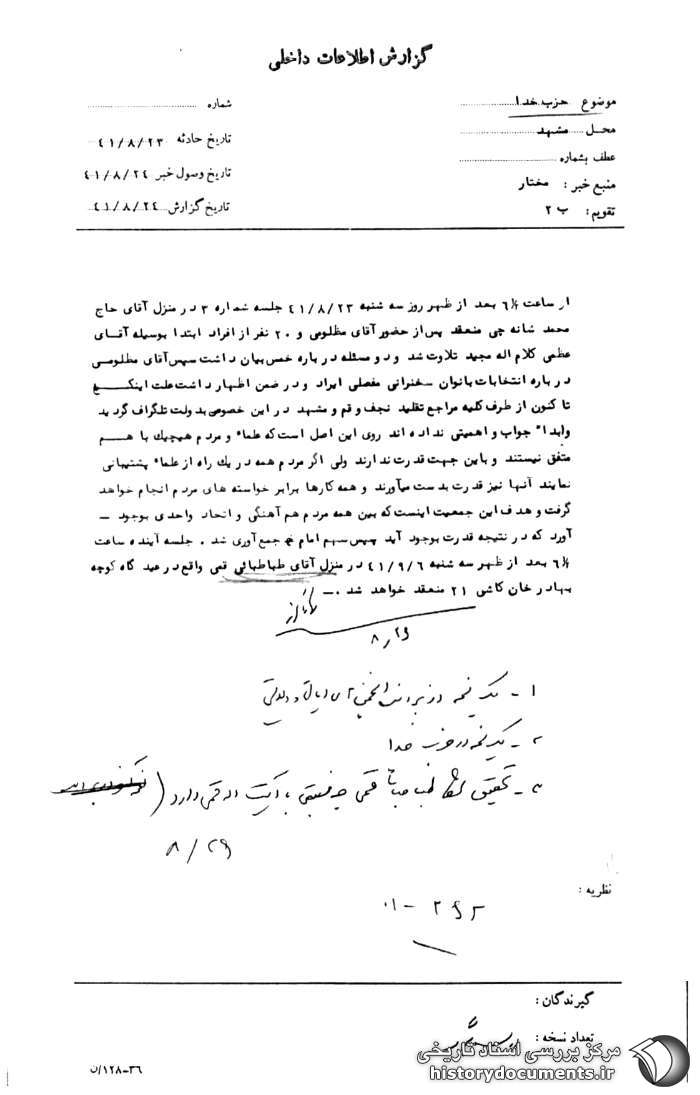 گزارش اطلاعات داخلی
موضوع حزب خدا
شماره
محل مشهد
تاریخ حادثه ۴۱/۸/۲۳
عطف بشماره
تاریخ وصول خبر ۴۱/۸/۲٤
منبع خبر : مختار
تاریخ گزارش ۴۱/۸/۲٤
تقویم : ب ۲
از ساعت ½۶ بعد از ظهر روز سه شنبه ۴۱/۸/۲۳ جلسه شماره ۳ در منزل آقای حاج
محمد شانه چی منعقد پس از حضور آقای مظلومی و ۲۰ نفر از افراد ابتدا بوسیله آقای
عظمی کلام اله مجید تلاوت شد و دو مسئله درباره خمس بیان داشت سپس آقای مظلومی
درباره انتخابات بانوان سخنرانی مفصلی ایراد و در ضمن اظهار داشت علت اینکه
تا کنون از طرف کلیه مراجع تقلید نجف و قم و مشهد در این خصوص بدولت تلگراف گردید
وابدا" جواب و اهمیتی نداده اند روی این اصل است که علما و مردم هیچیك با هم
متفق نیستند و باین جهت قدرت ندارند ولی اگر مردم همه در یك راه از علما پشتیبانی
نمایند آنها نیز قدرت بدست میآورند و همه کارها برابر خواسته های مردم انجام خواهد
گرفت و هدف این جمعیت اینست که بین همه مردم هم آهنگی و اتحاد واحدی بوجود -
آورد که در نتیجه قدرت بوجود آید سپس سهم امام جمع آوری شد . جلسه آینده ساعت
½۶ بعد از ظهر سه شنبه ۴۱/۹/۶ در منزل آقای طباطبائی قمی واقع در عید گاه کوچه
بهادر خان کاشی ۲۱ منعقد خواهد شد .-
۸/۲۹
۱ - یک نسخه در پرونده انجمن های ایالتی و ولایتی
۲ - یک نسخه در حزب خدا
۳ - تحقیق طباطبائی قمی چه نسبتی با آیت اله قمی دارد
۸/۲۹
نظریه :
گیرندگان :
تعداد نسخه :
۳۶-۱۲۸/ن
مرکز بررسی اسناد تاریخی
historydocuments.ir